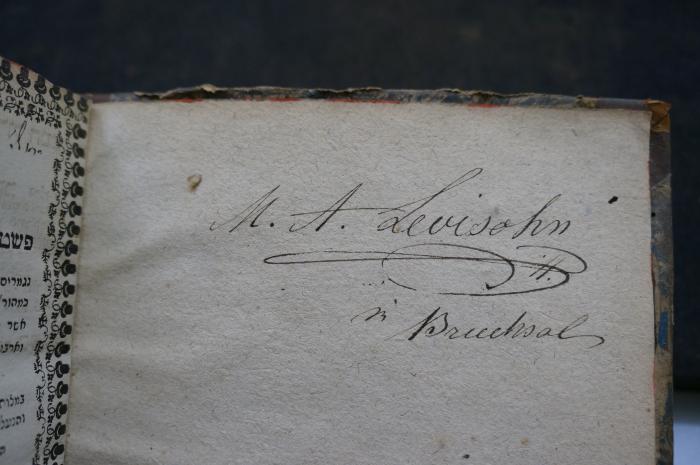 M. A. Levisohn
in Bruchsal
פשט
נגמרים
במהור"
אשר
וארב
במלות